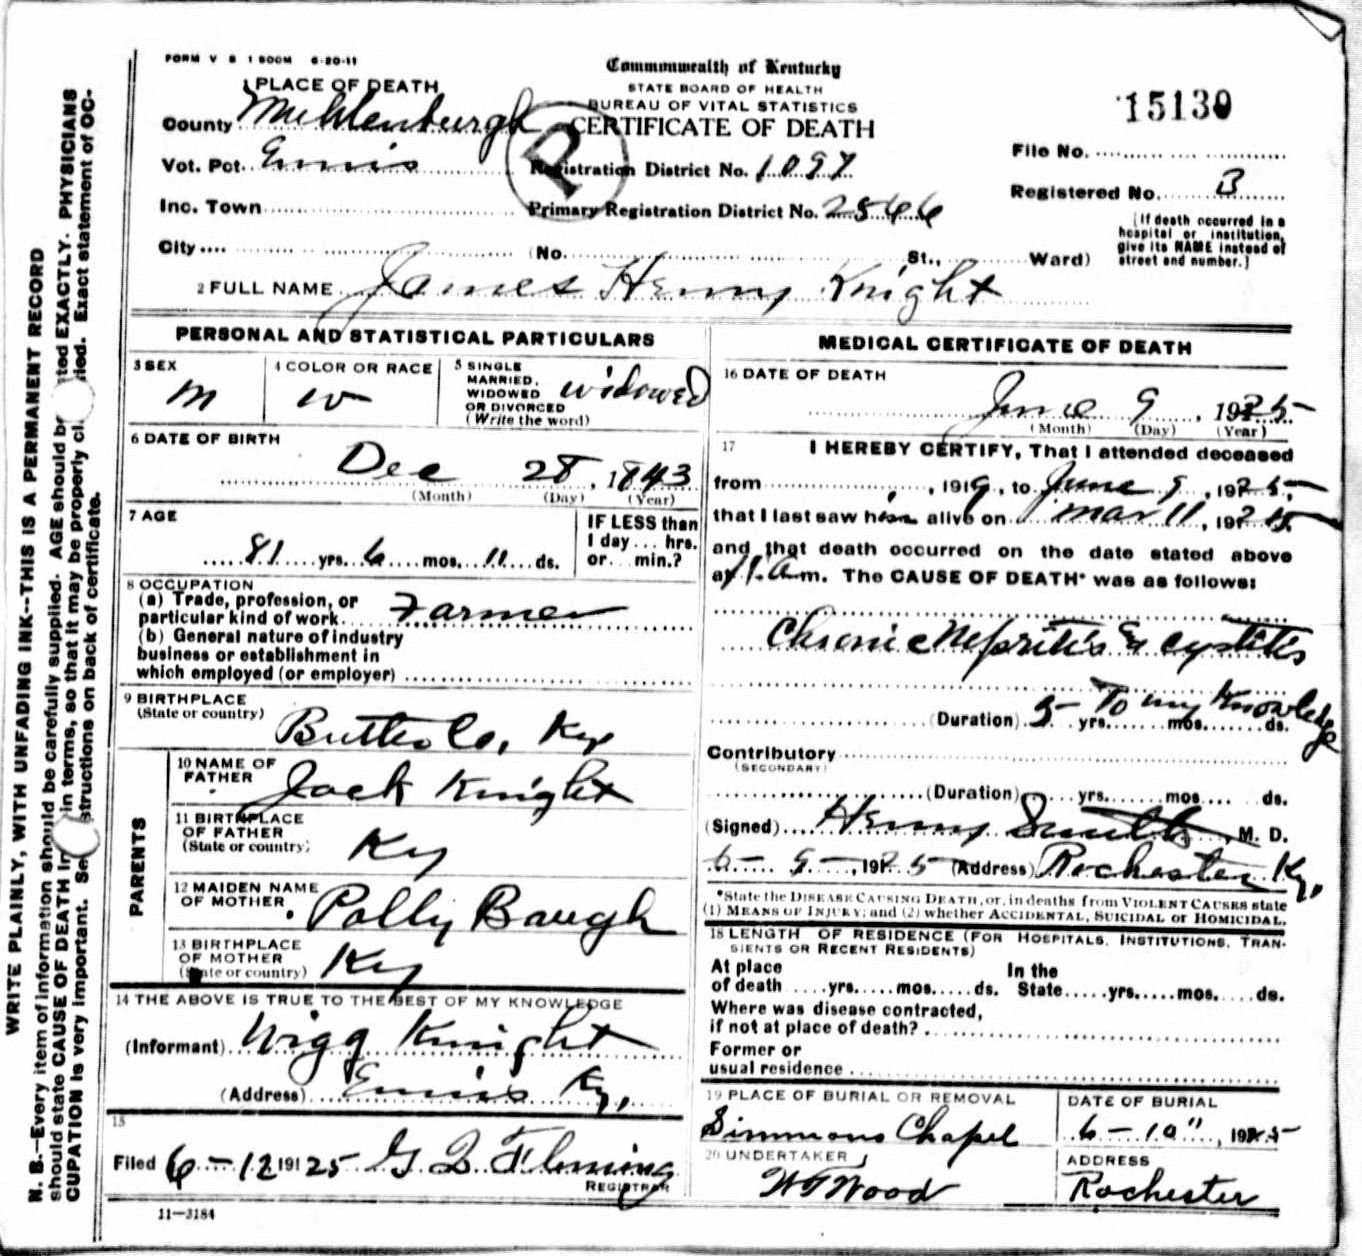 FORM V S 1 500M 6-20-11
1 PLACE OF DEATH
County Muhlenburgh
Vot. Pct. Ennis
Inc. Town
City
(No. St., Ward)
Commonwealth of Kentucky
STATE BOARD OF HEALTH
BUREAU OF VITAL STATISTICS
CERTIFICATE OF DEATH
P
Registration District No. 1097
Primary Registration District No. 2566
15130
File No.
Registered No. 3
[If death occurred in a
hospital or institution,
give its NAME instead of
street and number.]
2 FULL NAME James Henry Knight
PERSONAL AND STATISTICAL PARTICULARS
3 SEX
m
4 COLOR OR RACE
w
5 SINGLE
MARRIED,
WIDOWED
OR DIVORCED
(Write the word)
widowed
6 DATE OF BIRTH
Dec 28, 1843
(Month) (Day) (Year)
7 AGE
81 yrs. 6 mos. 11 ds.
IF LESS than
1 day... hrs.
or... min.?
8 OCCUPATION
(a) Trade, profession, or
particular kind of work Farmer
(b) General nature of industry
business or establishment in
which employed (or employer)
9 BIRTHPLACE
(State or country)
Butler Co, Ky
PARENTS
10 NAME OF
FATHER
Jack Knight
11 BIRTHPLACE
OF FATHER
(State or country)
Ky
12 MAIDEN NAME
OF MOTHER
Polly Baugh
13 BIRTHPLACE
OF MOTHER
(State or country)
Ky
14 THE ABOVE IS TRUE TO THE BEST OF MY KNOWLEDGE
(Informant) Wigg Knight
(Address) Ennis Ky,
15
Filed 6-12 191 25 G Fleming
REGISTRAR
11-3184
MEDICAL CERTIFICATE OF DEATH
16 DATE OF DEATH
June 9, 1925
(Month) (Day) (Year)
17 I HEREBY CERTIFY, That I attended deceased
from , 1919, to June 9, 1925,
that I last saw him alive on Mar 11, 1925,
and that death occurred on the date stated above
at 1 a.m. The CAUSE OF DEATH* was as follows:
Chronic Nepritis & cystitis
(Duration) 5 yrs. mos. ds. To my Knowledge
Contributory
(SECONDARY)
(Duration) yrs. mos. ds.
(Signed) Henry Smith, M. D.
6-9-, 1925 (Address) Rochester Ky,
*State the DISEASE CAUSING DEATH, or, in deaths from VIOLENT CAUSES state
(1) MEANS OF INJURY; and (2) whether ACCIDENTAL, SUICIDAL or HOMICIDAL.
18 LENGTH OF RESIDENCE (FOR HOSPITALS, INSTITUTIONS, TRAN-
SIENTS OR RECENT RESIDENTS)
At place In the
of death yrs. mos. ds. State yrs. mos. ds.
Where was disease contracted,
if not at place of death?
Former or
usual residence
19 PLACE OF BURIAL OR REMOVAL
Simmons Chapel
DATE OF BURIAL
6-10", 1925
20 UNDERTAKER
W T Wood
ADDRESS
Rochester
WRITE PLAINLY, WITH UNFADING INK--THIS IS A PERMANENT RECORD
N. B.-Every item of information should be carefully supplied. AGE should be stated EXACTLY. PHYSICIANS
should state CAUSE OF DEATH in terms, so that it may be properly cl ied. Exact statement of OC-
CUPATION is very important. See structions on back of certificate.